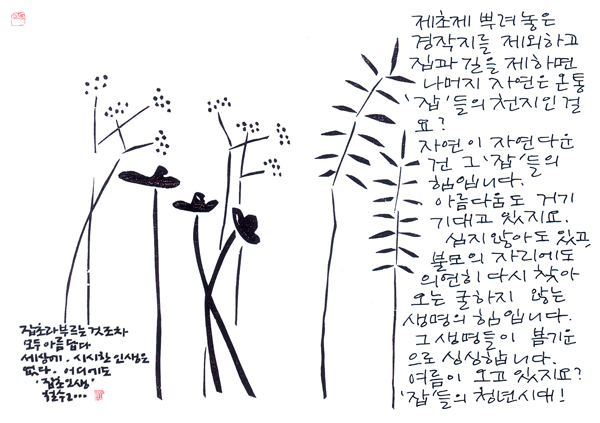 제초제 뿌려놓은
경작지를 제외하고
집과 길을 제하면
나머지 자연은 온통
'잡'들의 천지인걸
요?
자연이 자연다운
건 그 '잡'들의
힘입니다.
아름다움도 거기
기대고 있지요.
심지 않아도 있고,
불모의 자리에도
의연히 다시 찾아
오는 굴하지 않는
생명의 힘입니다.
그 생명들이 봄기운
으로 싱싱합니다.
여름이 오고 있지요?
'잡'들의 청년시대!
잡초라 부르는 것조차
모두 아름답다
세상에. 시시한 인생은
없다. 어디에도
'잡초 인생'
철수2000